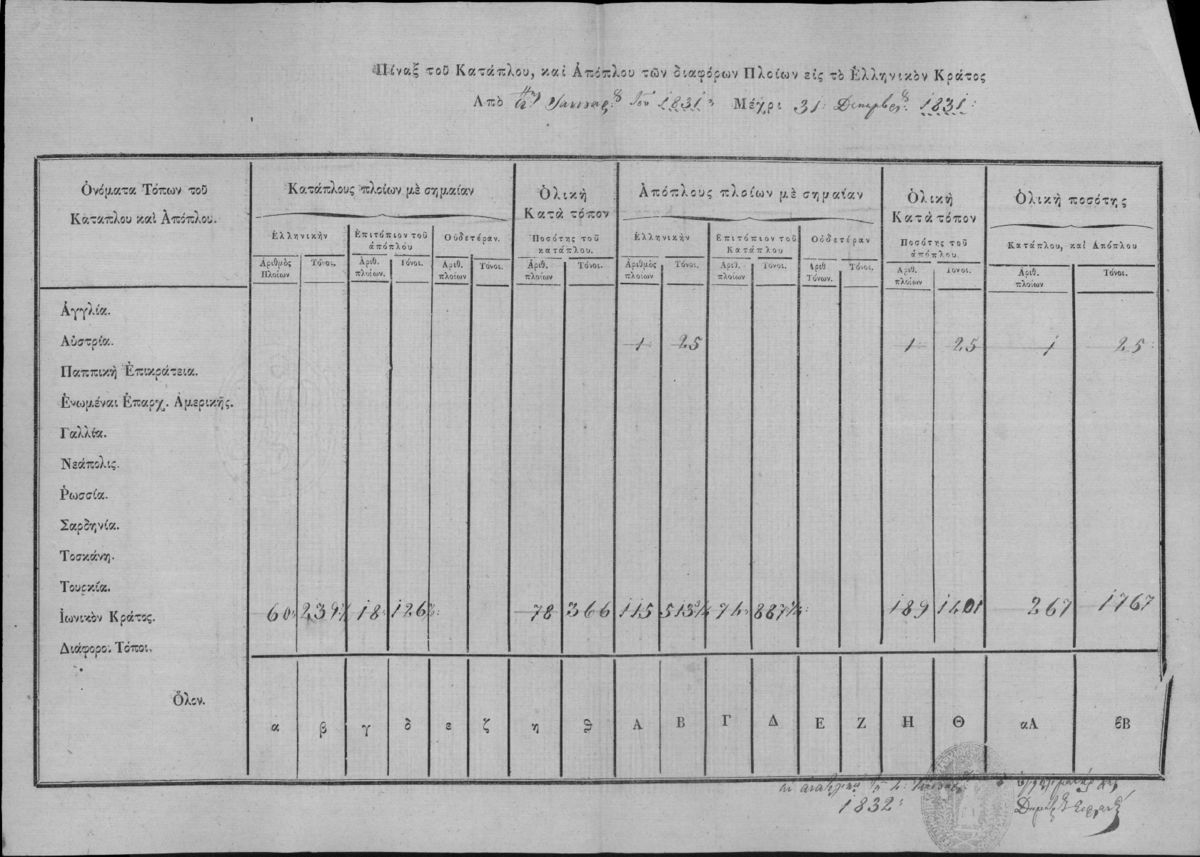 Πίναξ τοῦ Κατάπλου, καὶ Ἀπόπλου τῶν διαφόρων Πλοίων εἰς τὸ Ἑλληνικὸν Κράτος
Ἀπὸ 1831 Μέχρι 31: Δεκεμβρ. 1831:
Ὀνόματα Τόπων τοῦ Καταπλου καὶ Ἀπόπλου.
Κατάπλους πλοίων μὲ σημαίαν
Ὁλικὴ Κατὰ τόπον
Ἀπόπλους πλοίων μὲ σημαίαν
Ὁλικὴ Κατὰ τόπον
Ὁλικὴ ποσότης
Ἑλληνικὴν Ἐπιτόπιον τοῦ ἀπόπλου Οὐδετέραν. Ποσότης τοῦ κατάπλου. Ἑλληνικὴν Ἐπιτόπιον τοῦ Κατάπλου Οὐδετέραν Ποσότης τοῦ ἀπόπλου. Κατάπλου, καὶ Ἀπόπλου
Ἀριθμὸς Πλοίων Τόνοι. Ἀριθ. πλοίων. Τόνοι. Ἀριθ. πλοίων Τόνοι. Ἀριθ. πλοίων Τόνοι. Ἀριθμὸς πλοίων Τόνοι. Ἀριθ. πλοίων Τόνοι. Ἀριθ Τόνων. Τόνοι. Ἀριθ. πλοίων Τόνοι. Ἀριθ. πλοίων Τόνοι.
Ἀγγλία.
Αὐστρία. 1 25 1 25 1 25:
Παππικὴ Ἐπικράτεια.
Ἑνωμέναι Ἐπαρχ. Ἀμερικῆς.
Γαλλία.
Νεάπολις.
Ῥωσσία.
Σαρδηνία.
Τοσκάνη.
Τουρκία.
Ἰωνικὸν Κράτος. 60: 18: 78 366 115 74: 189 1401 267 1767
Διάφοροι Τόποι.
Ὅλον.
α β γ δ ε ζ η θ Α Β Γ Δ Ε Ζ Η Θ αΑ βΒ
1832: